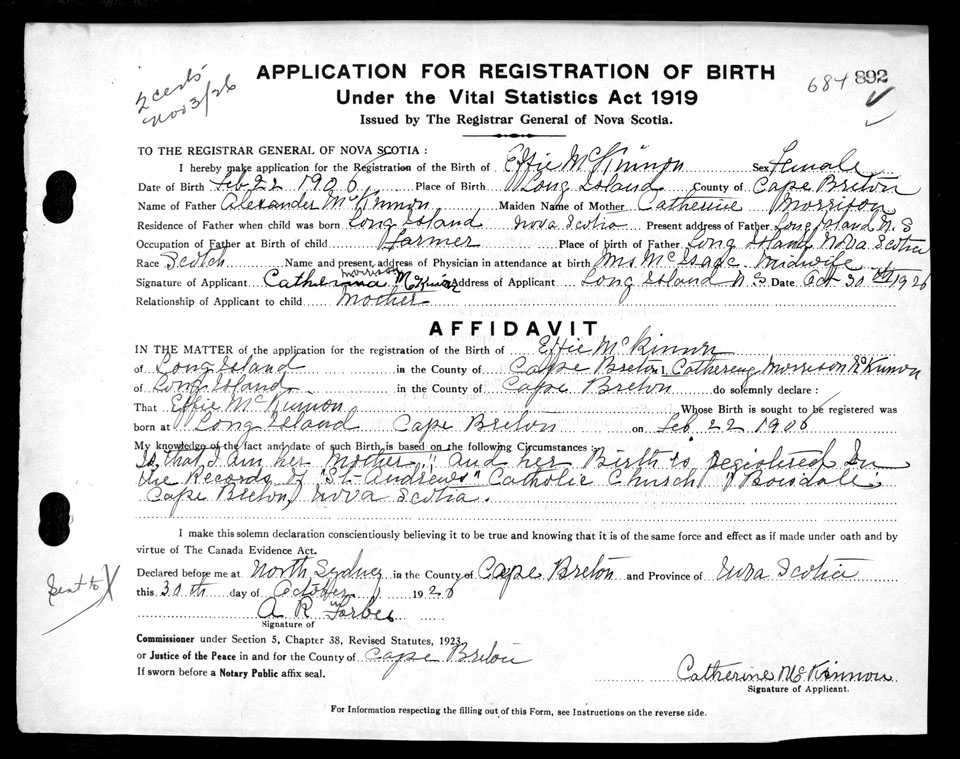 2 certs
Nov 3/26
684 892
APPLICATION FOR REGISTRATION OF BIRTH
Under the Vital Statistics Act 1919
Issued by The Registrar General of Nova Scotia.
TO THE REGISTRAR GENERAL OF NOVA SCOTIA:
I hereby make application for the Registration of the Birth of Effie McKinnon Sex Female
Date of Birth Feb 22 1906 Place of Birth Long Island County of Cape Breton
Name of Father Alexander McKinnon Maiden Name of Mother Catherine Morrison
Residence of Father when child was born Long Island Nova Scotia Present address of Father Long Island N. S
Occupation of Father at Birth of child Farmer Place of birth of Father Long Island Nova Scotia
Race Scotch Name and present address of Physician in attendance at birth Mrs McIsaac Midwife
Signature of Applicant Catherina Morrison McKinnon Address of Applicant Long Island N S Date Oct 30th 1926
Relationship of Applicant to child Mother
AFFIDAVIT
IN THE MATTER of the application for the registration of the Birth of Effie McKinnon
of Long Island in the County of Cape Breton I, Catherine Morrison McKinnon
of Long Island in the County of Cape Breton do solemnly declare:
That Effie McKinnon Whose Birth is sought to be registered was
born at Long Island Cape Breton on Feb. 22 1906
My knowledge of the fact and date of such Birth is based on the following Circumstances:
Is that I am her "Mother" and her Birth is registered in
the Records of "St-Andrews" Catholic Church Boisdale
Cape Breton, Nova Scotia.
I make this solemn declaration conscientiously believing it to be true and knowing that it is of the same force and effect as if made under oath and by
virtue of The Canada Evidence Act.
Declared before me at North Sydney in the County of Cape Breton and Province of Nova Scotia
this 30th day of October 1926
Sent to X
A R Forbes
Signature of
Commissioner under Section 5, Chapter 38, Revised Statutes, 1923
or Justice of the Peace in and for the County of Cape Breton
If sworn before a Notary Public affix seal.
Catherine McKinnon
Signature of Applicant.
For Information respecting the filling out of this Form, see Instructions on the reverse side.